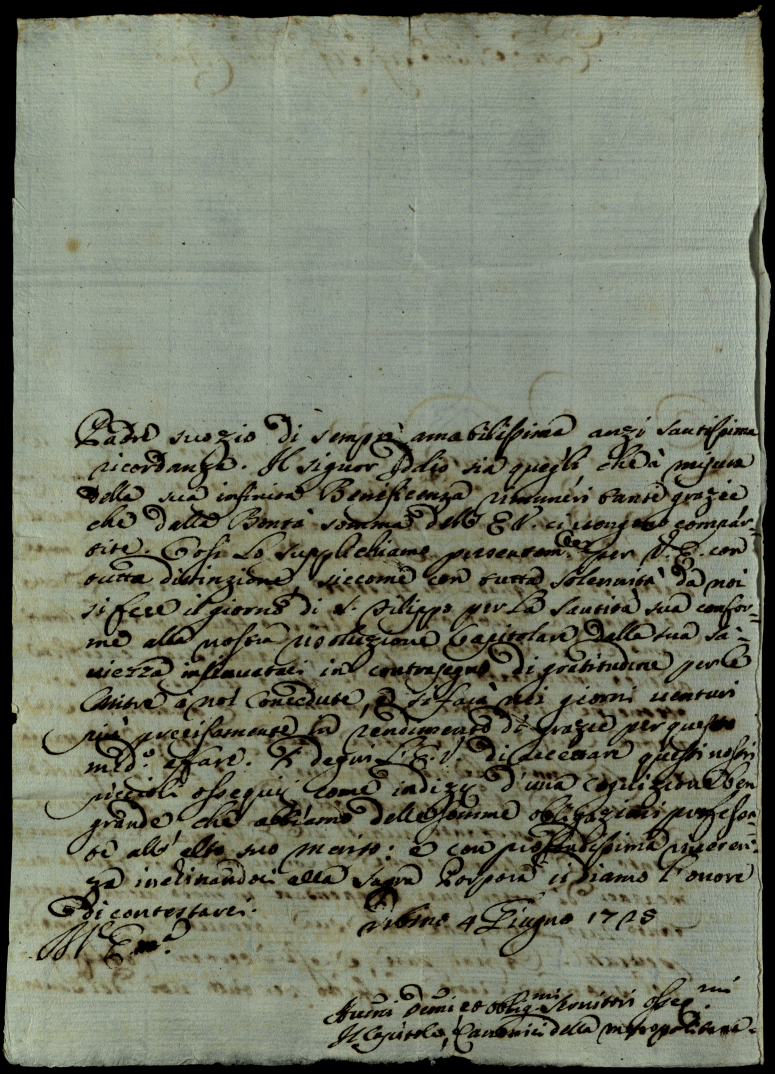 Padre suo zio di sempre amabilissima anzi santissima
ricordanza. Il signor Iddio sia quegli che à misura
della sua infinita Beneficenza rimuneri tante grazie
che dalla Bontà somma dell' E. V. ci vengono compar=
tite. Così Lo supplichiamo per V. E. con
tutta distinzione siccome con tutta solennità da noi
si fece il giorno di S. Filippo per La Santità sua confor=
me alla nostra risoluzione Capitolare dalla sua sa=
viezza insinuataci in contrasegno di gratitudine per le
Mitre a noi concedute, e si farà nei giorni venturi
più precisamente in rendimento di grazie per questo
med.º affare. Si degni L' E. V. di accettare questi nostri
piccioli ossequii come indizii d' una cognizione ben
grande che abbiamo delle somme obligazioni professa=
te all' alto suo merito: e con profondissima riveren=
za inchinandoci alla Sagra Porpora ci diamo l' onore
di contestarci.
Urbino 4 Giugno 1725
Di V. Em.ª
Humi Demi et oblig.mi Servitori osseq.mi
Il Capitolo, Canonici della metropolitana.